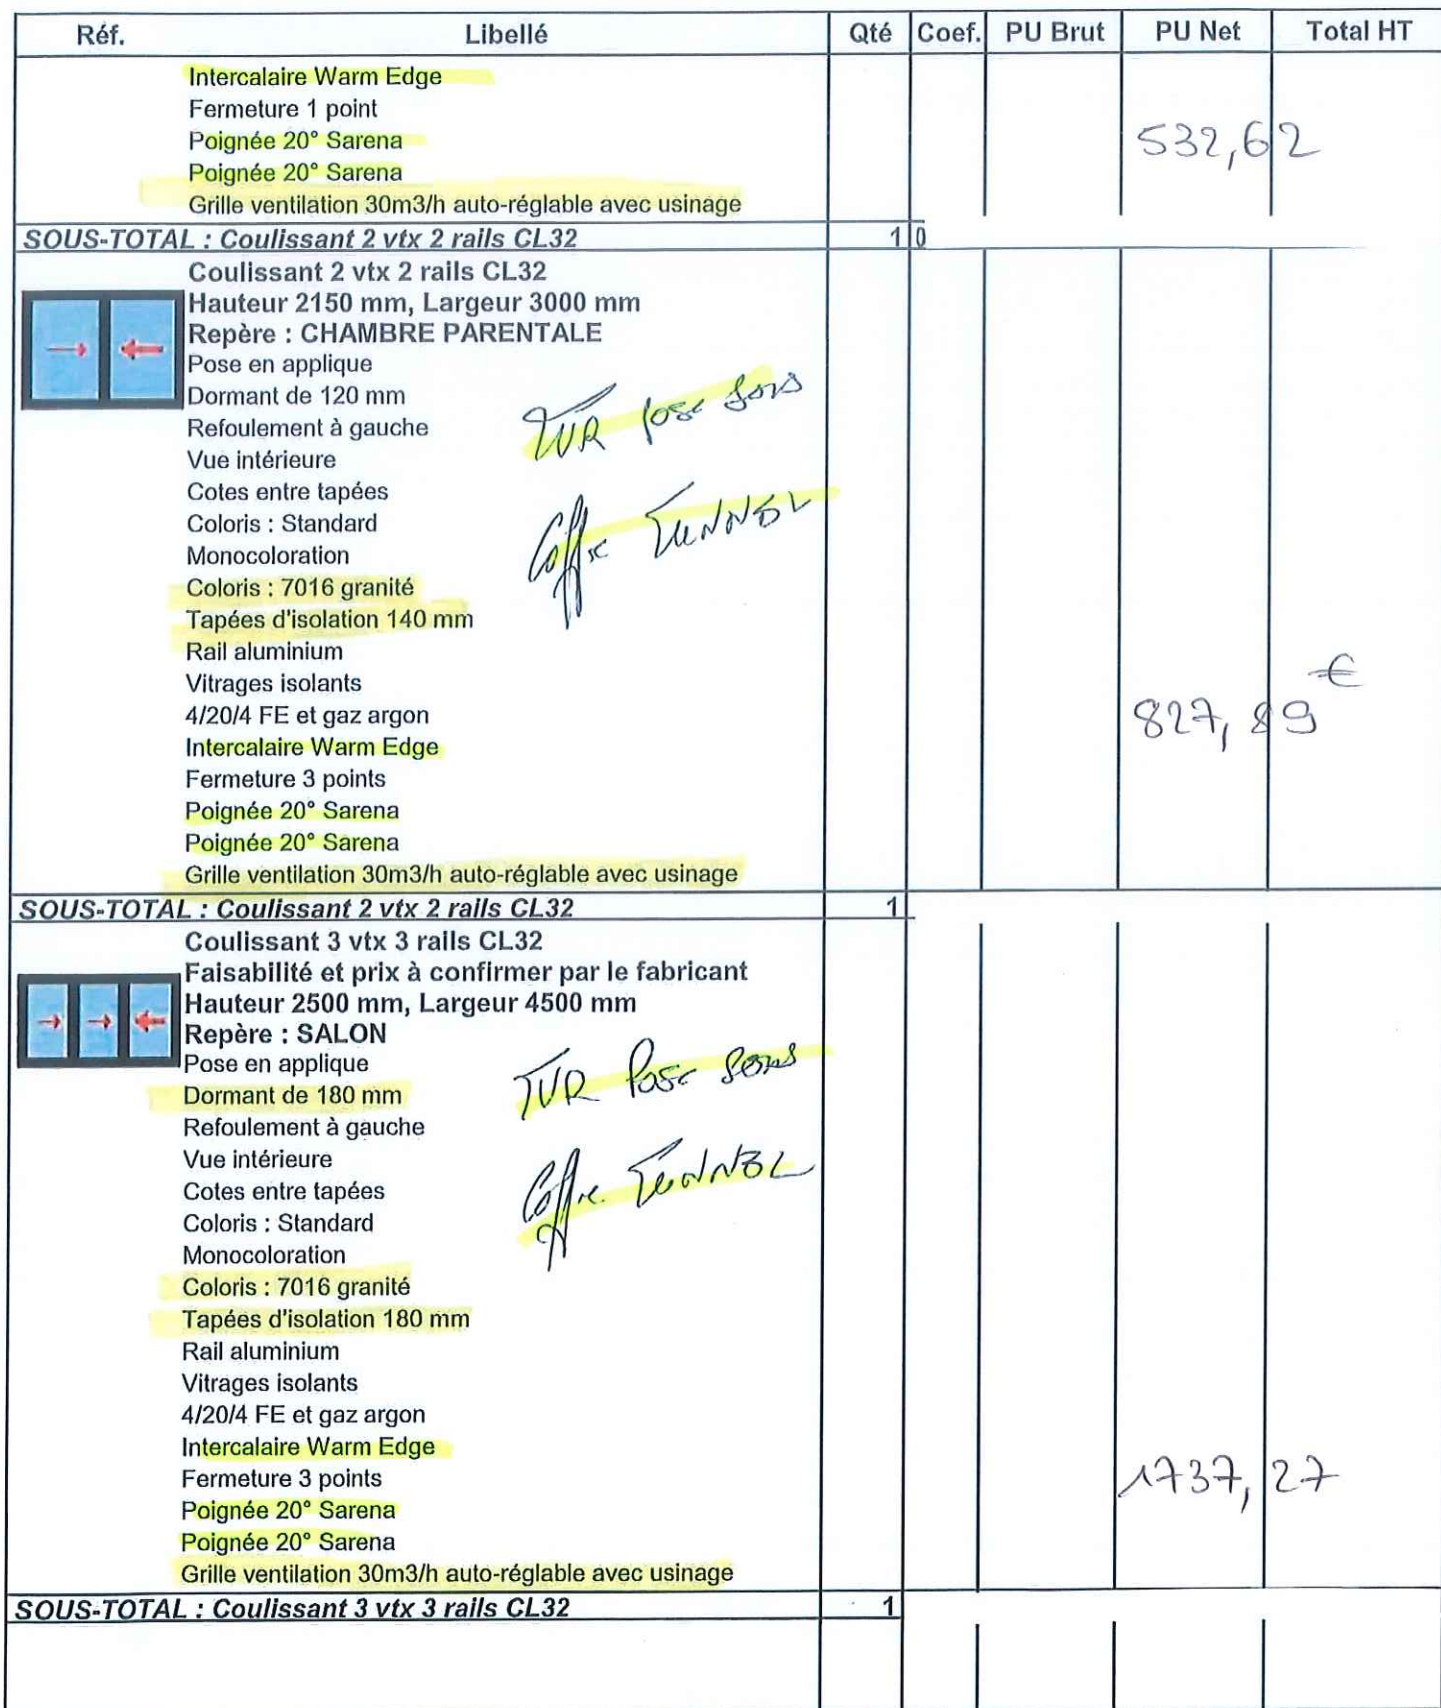 Réf. Libellé Qté Coef. PU Brut PU Net Total HT
Intercalaire Warm Edge
Fermeture 1 point
Poignée 20° Sarena
532,62
Poignée 20° Sarena
Grille ventilation 30m3/h auto-réglable avec usinage
SOUS-TOTAL : Coulissant 2 vtx 2 rails CL32 1 0
Coulissant 2 vtx 2 rails CL32
Hauteur 2150 mm, Largeur 3000 mm
Repère : CHAMBRE PARENTALE
Pose en applique
Dormant de 120 mm
TVR pose sous
Refoulement à gauche
Vue intérieure
Cotes entre tapées
Coloris : Standard
Coffre TUNNEL
Monocoloration
Coloris : 7016 granité
Tapées d'isolation 140 mm
Rail aluminium
Vitrages isolants
4/20/4 FE et gaz argon
827,89 €
Intercalaire Warm Edge
Fermeture 3 points
Poignée 20° Sarena
Poignée 20° Sarena
Grille ventilation 30m3/h auto-réglable avec usinage
SOUS-TOTAL : Coulissant 2 vtx 2 rails CL32 1
Coulissant 3 vtx 3 rails CL32
Faisabilité et prix à confirmer par le fabricant
Hauteur 2500 mm, Largeur 4500 mm
Repère : SALON
Pose en applique
TVR Pose sous
Dormant de 180 mm
Refoulement à gauche
Vue intérieure
Cotes entre tapées
Coffre TUNNEL
Coloris : Standard
Monocoloration
Coloris : 7016 granité
Tapées d'isolation 180 mm
Rail aluminium
Vitrages isolants
4/20/4 FE et gaz argon
Intercalaire Warm Edge
Fermeture 3 points
1737,27
Poignée 20° Sarena
Poignée 20° Sarena
Grille ventilation 30m3/h auto-réglable avec usinage
SOUS-TOTAL : Coulissant 3 vtx 3 rails CL32 1